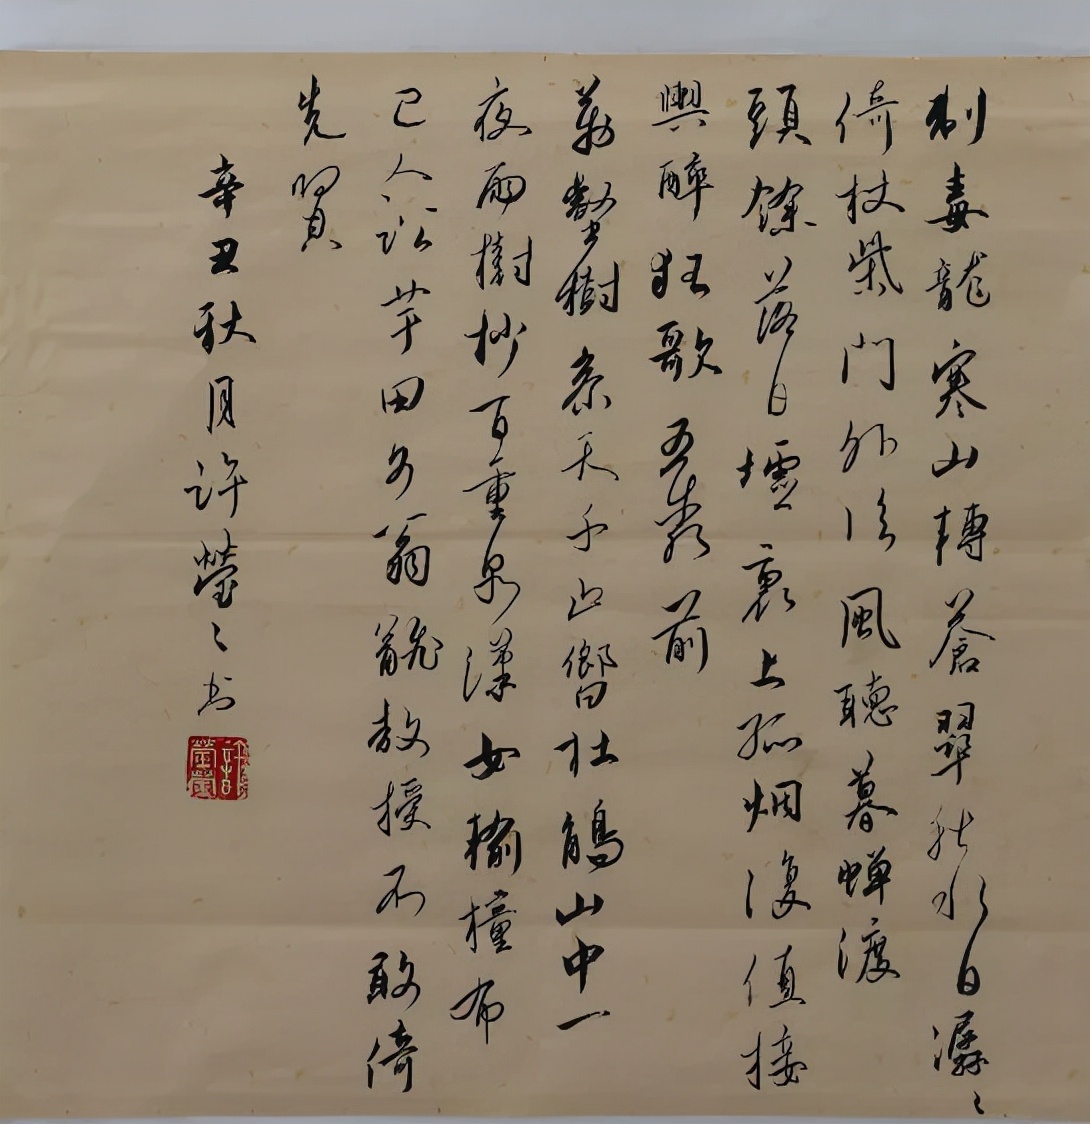 制毒龍寒山轉蒼翠秋水日潺〻
倚杖柴門外臨風聽暮蟬渡
頭餘落日墟裏上孤烟復值接
輿醉狂歌五柳前
萬壑樹參天千山響杜鵑山中一
夜雨樹杪百重泉漢女輸橦布
巴人訟芋田文翁翻教授不敢倚
先賢
辛丑秋月許瑩〻书
許瑩瑩